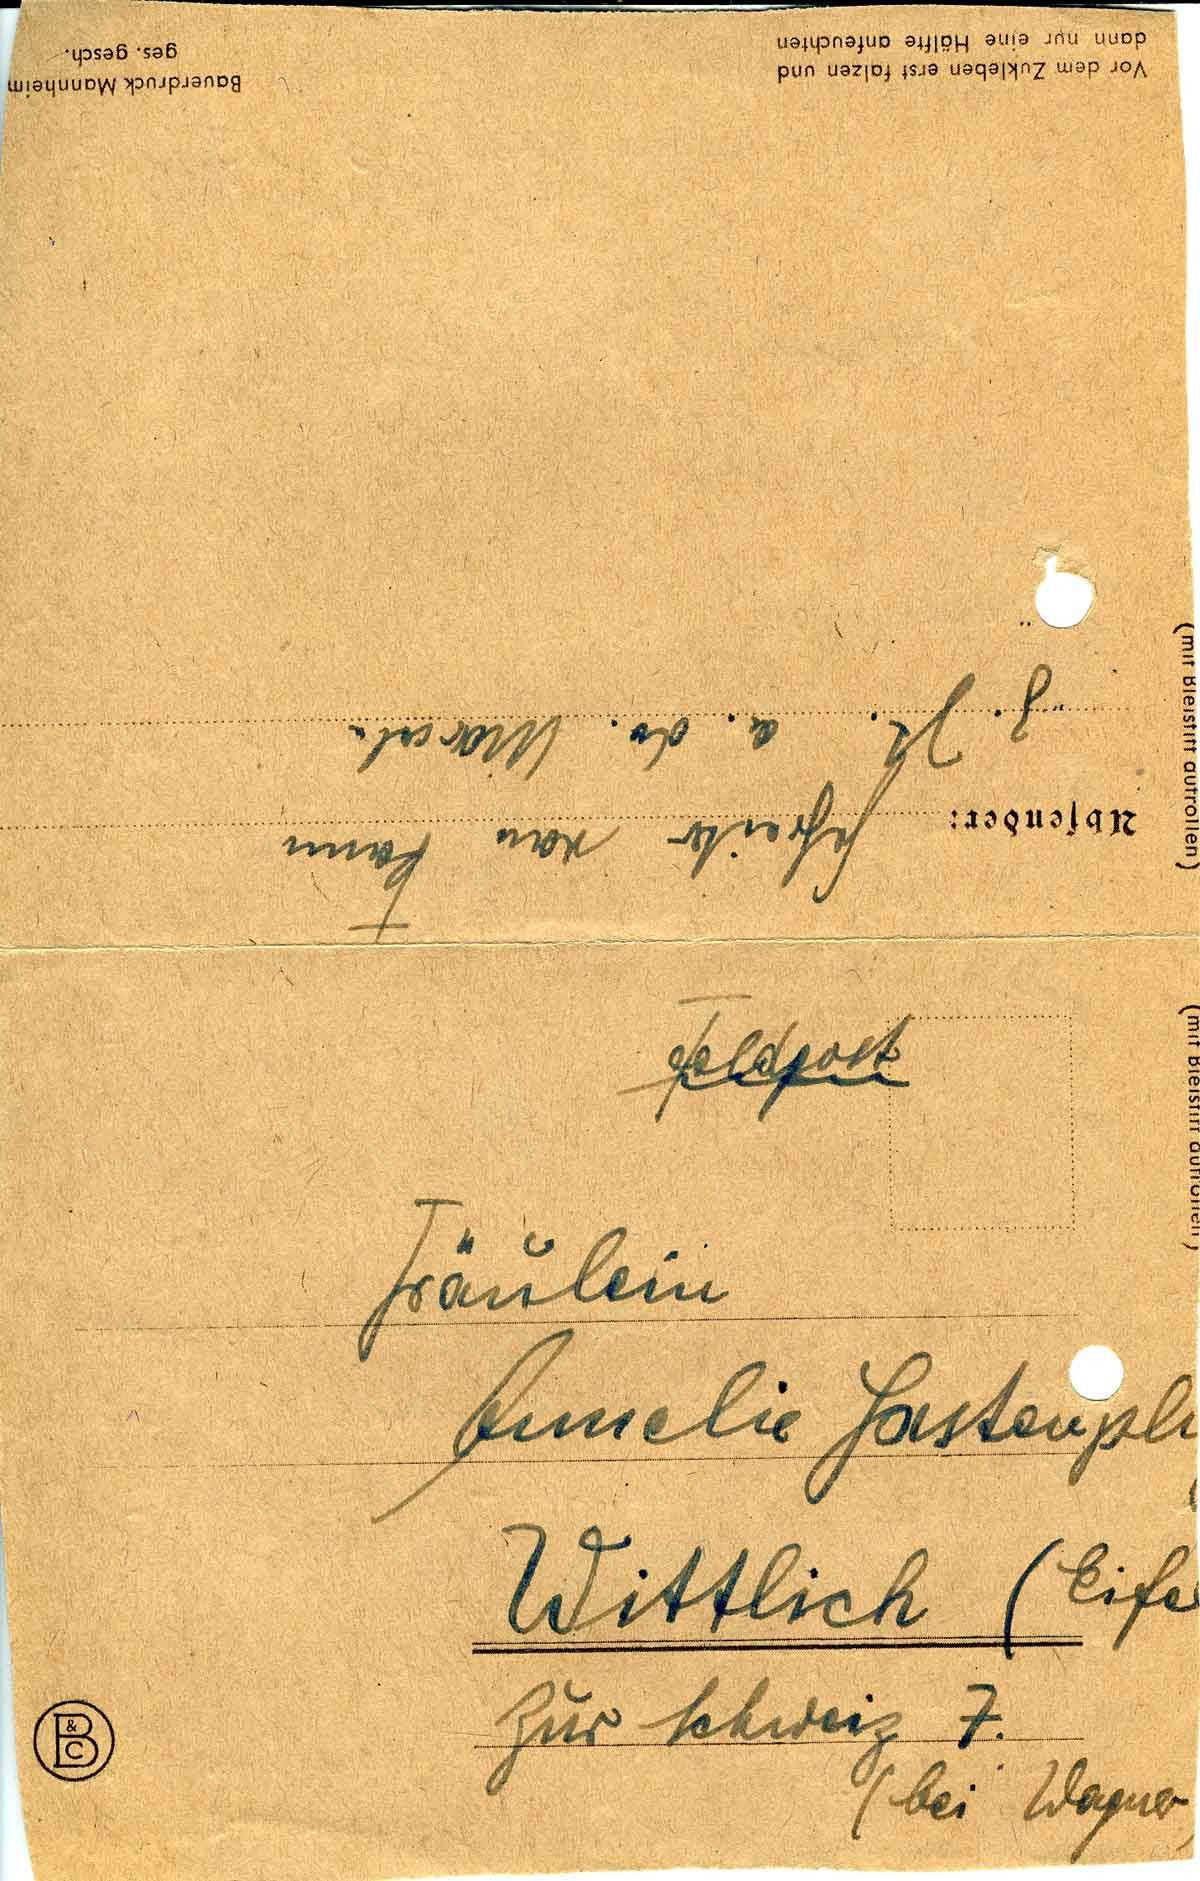 Vor dem Zukleben erst falzen und
dann nur eine Hälfte anfeuchten
Bauerdruck Mannheim
ges. gesch.
(mit Bleistift aufrollen)
Absender:
z. Zt. a. d.
(mit Bleistift aufrollen)
Feldpost
Fräulein
Annelie
Wittlich (Eife
Zur Schweiz 7.
(bei Wagner
B & C